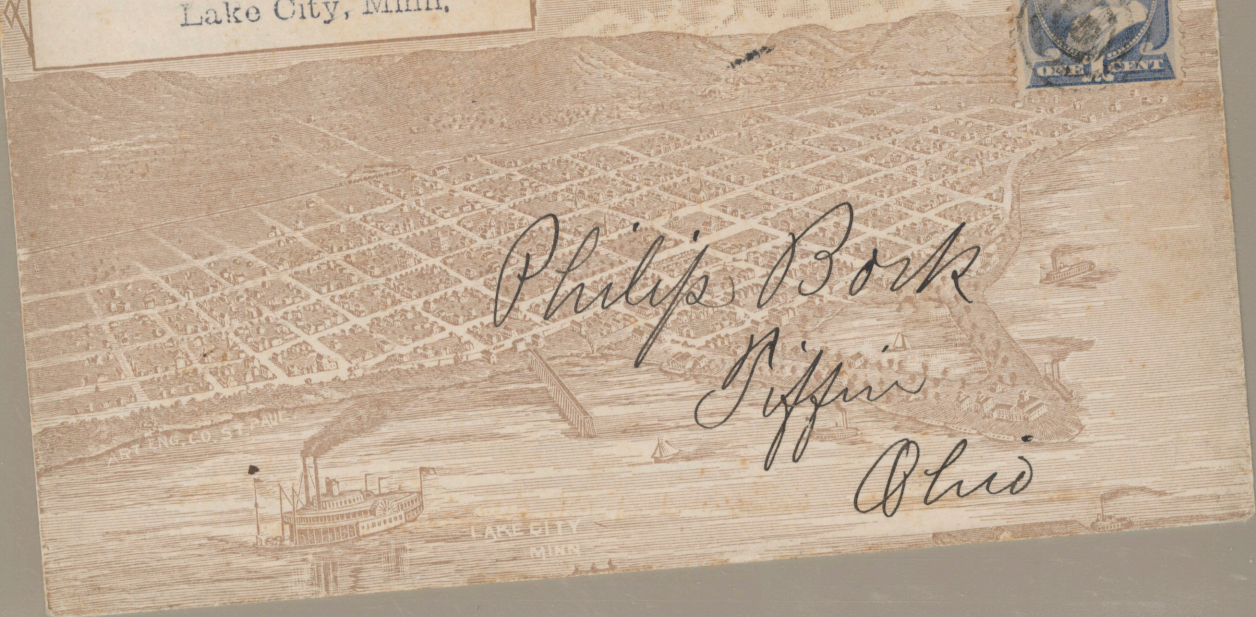 Lake City, Minn.
ONE 1 CENT
Philip Bork
Tiffin
Ohio
ART ENG. CO. ST. PAUL
LAKE CITY
MINN